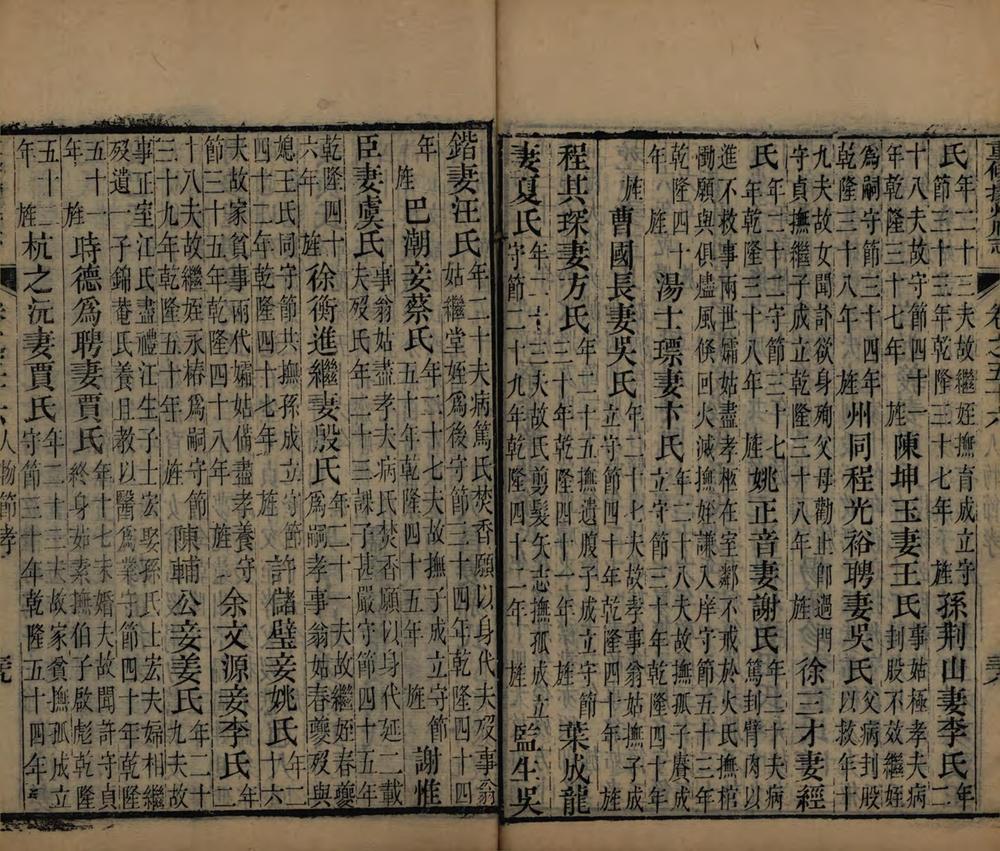 卷之五十六
氏年二十三夫故繼姪撫育成立守節三十三年乾隆三十七年 旌 孫荆山妻李氏年二
十八夫故守節四十一年乾隆三十七年 旌 陳坤玉妻王氏事姑極孝夫病刲股不效繼姪
爲嗣守節三十四年乾隆三十八年 旌 州同程光裕聘妻吳氏父病刲股以救年十
九夫故女聞訃欲身殉父母勸止卽過門守貞撫繼子成立乾隆三十八年 旌 徐三才妻經
氏年二十二守節三十七年乾隆三十八年 旌 姚正音妻謝氏年二十夫病篤刲臂肉以
進不救事兩世孀姑盡孝柩在室鄰不戒於火氏撫棺慟願與俱燼風倏回火滅撫姪謙入庠守節五十三年
乾隆四十年 旌 湯士環妻卞氏年二十八夫故撫孤子賡成立守節三十年乾隆四十年
旌 曹國長妻吳氏年二十七夫故孝事翁姑撫子成立守節四十年乾隆四十年 旌
程其琛妻方氏年二十五撫遺腹子成立守節三十年乾隆四十一年 旌 葉成龍
妻夏氏年二十三夫故氏剪髮矢志撫孤成立守節二十九年乾隆四十二年 旌 監生吳
鍇妻汪氏年二十夫病篤氏焚香願以身代夫歿事翁姑繼堂姪爲後守節三十四年乾隆四十四
年 旌 巴潮妾蔡氏年二十七夫故撫子成立守節五十年乾隆四十五年 旌 謝惟
臣妻虞氏事翁姑盡孝夫病氏焚香願以身代延二載夫歿氏年二十三課子甚嚴守節四十五年
乾隆四十六年 旌 徐衡進繼妻殷氏年二十一夫故繼姪春夔爲嗣孝事翁姑春夔歿與
媳王氏同守節共撫孫成立守節四十二年乾隆四十七年 旌 許儲璧妾姚氏年二十六
夫故家貧事兩代孀姑備盡孝養守節三十五年乾隆四十八年 旌 余文源妾李氏二
十八夫故繼姪永椿爲嗣守節三十九年乾隆五十年 旌 陳輔公妾姜氏年二十九夫故
事正室江氏盡禮江生子士宏娶孫氏士宏夫婦相繼歿遺一子錦菴氏養且教以醫爲業守節四十年乾隆
五十一年 旌 時德爲聘妻賈氏年十七未婚夫故聞許守貞終身茹素撫伯子啟彪乾隆
五十二年 旌 杭之沅妻賈氏年二十三夫故家貧撫孤成立守節三十年乾隆五十四年
人物節孝